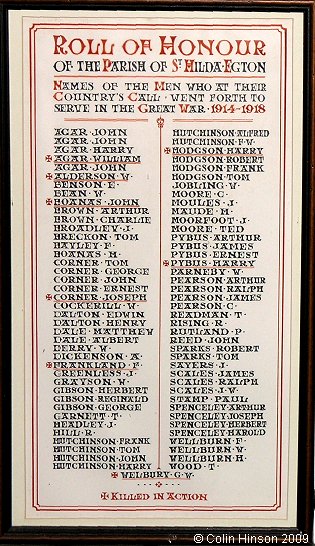 Roll of Honour
of the Parish of St Hilda · Egton
Names of the Men who at their
Country's Call · went forth to
serve in the Great War · 1914-1918
Agar · John
Agar · John
Agar · Harry
✠ Agar · William
Agar · John
✠ Alderson · W·
Benson · E·
Bean · W·
✠ Boanas · John
Brown · Arthur
Brown · Charlie
Broadley · J·
Breckon · Tom
Bayley · F·
Boanas · H·
Corner · Tom
Corner · George
Corner · John
Corner · Ernest
✠ Corner · Joseph
Cockerill · W·
Dalton · Edwin
Dalton · Henry
Dale · Matthew
Dale · Albert
Derry · W·
Dickenson · A·
✠ Frankland · F·
Greenless · J·
Grayson · W·
Gibson · Herbert
Gibson · Reginald
Gibson · George
Garnett · T·
Headley · J·
Hill · R·
Hutchinson · Frank
Hutchinson · Tom
Hutchinson · John
Hutchinson · Harry
Hutchinson · Alfred
Hutchinson · F · W·
✠ Hodgson · Harry
Hodgson · Robert
Hodgson · Frank
Hodgson · Tom
Jobling · W·
Moore · C·
Moules · J·
Maude · H·
Moorfoot · J·
Moore · Ted
Pybus · Arthur
Pybus · James
Pybus · Ernest
✠ Pybus · Harry
Parneby · W·
Pearson · Arthur
Pearson · Ralph
Pearson · James
Pearson · C·
Readman · T·
Rising · R·
Rutland · P·
Reed · John
Sparks · Robert
Sparks · Tom
Sayers · J·
Scales · James
Scales · Ralph
Scales · J · W·
Stamp · Paul
Spenceley · Arthur
Spenceley · Joseph
Spenceley · Herbert
Spenceley · Harold
Wellburn · F·
Wellburn · W·
Wellburn · H·
Wood · T·
✠ Welbury · G · W·
✠ Killed in Action
© Colin Hinson 2009